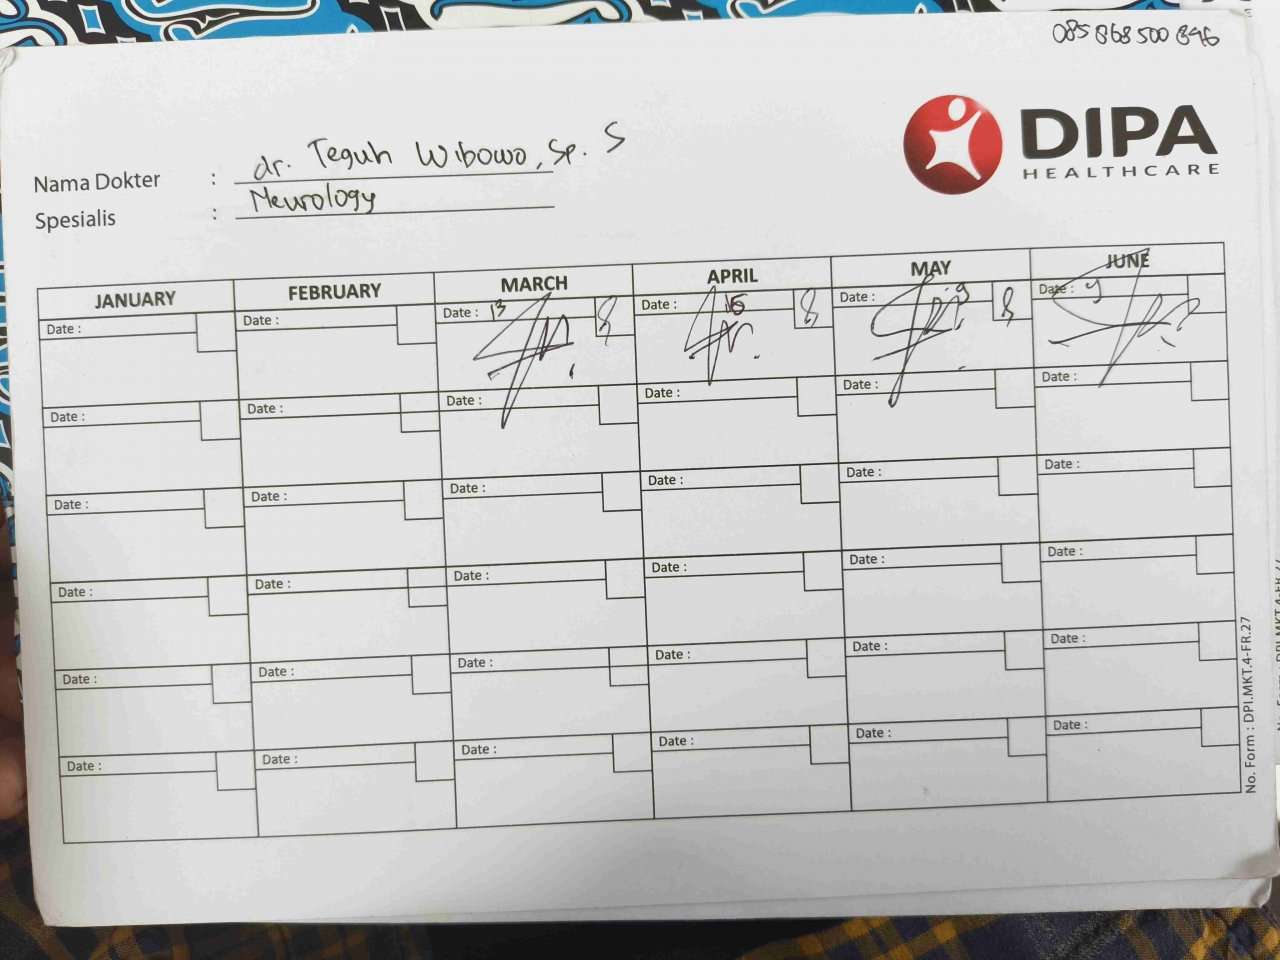 085 868 500 896
DIPA
HEALTHCARE
Nama Dokter : dr. Teguh Wibowo, Sp. S
Spesialis : Neurology
JANUARY FEBRUARY MARCH APRIL MAY JUNE
Date : Date : Date : 13 Date : 15 Date : 9 Date : 9
Date : Date : Date : Date : Date : Date :
Date : Date : Date : Date : Date : Date :
Date : Date : Date : Date : Date : Date :
Date : Date : Date : Date : Date : Date :
Date : Date : Date : Date : Date : Date :
No. Form : DPI.MKT.4-FR.27